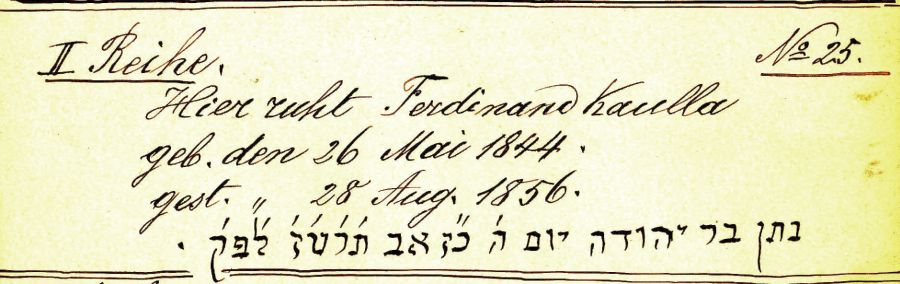 II Reihe. No 25.
Hier ruht Ferdinand Kaulla
geb. den 26 Mai 1844.
gest. „ 28 Aug. 1856.
נתן בר יהודה יום ה' כ"ז אב ת'ר'ט'ז' ל'פ'ק'.